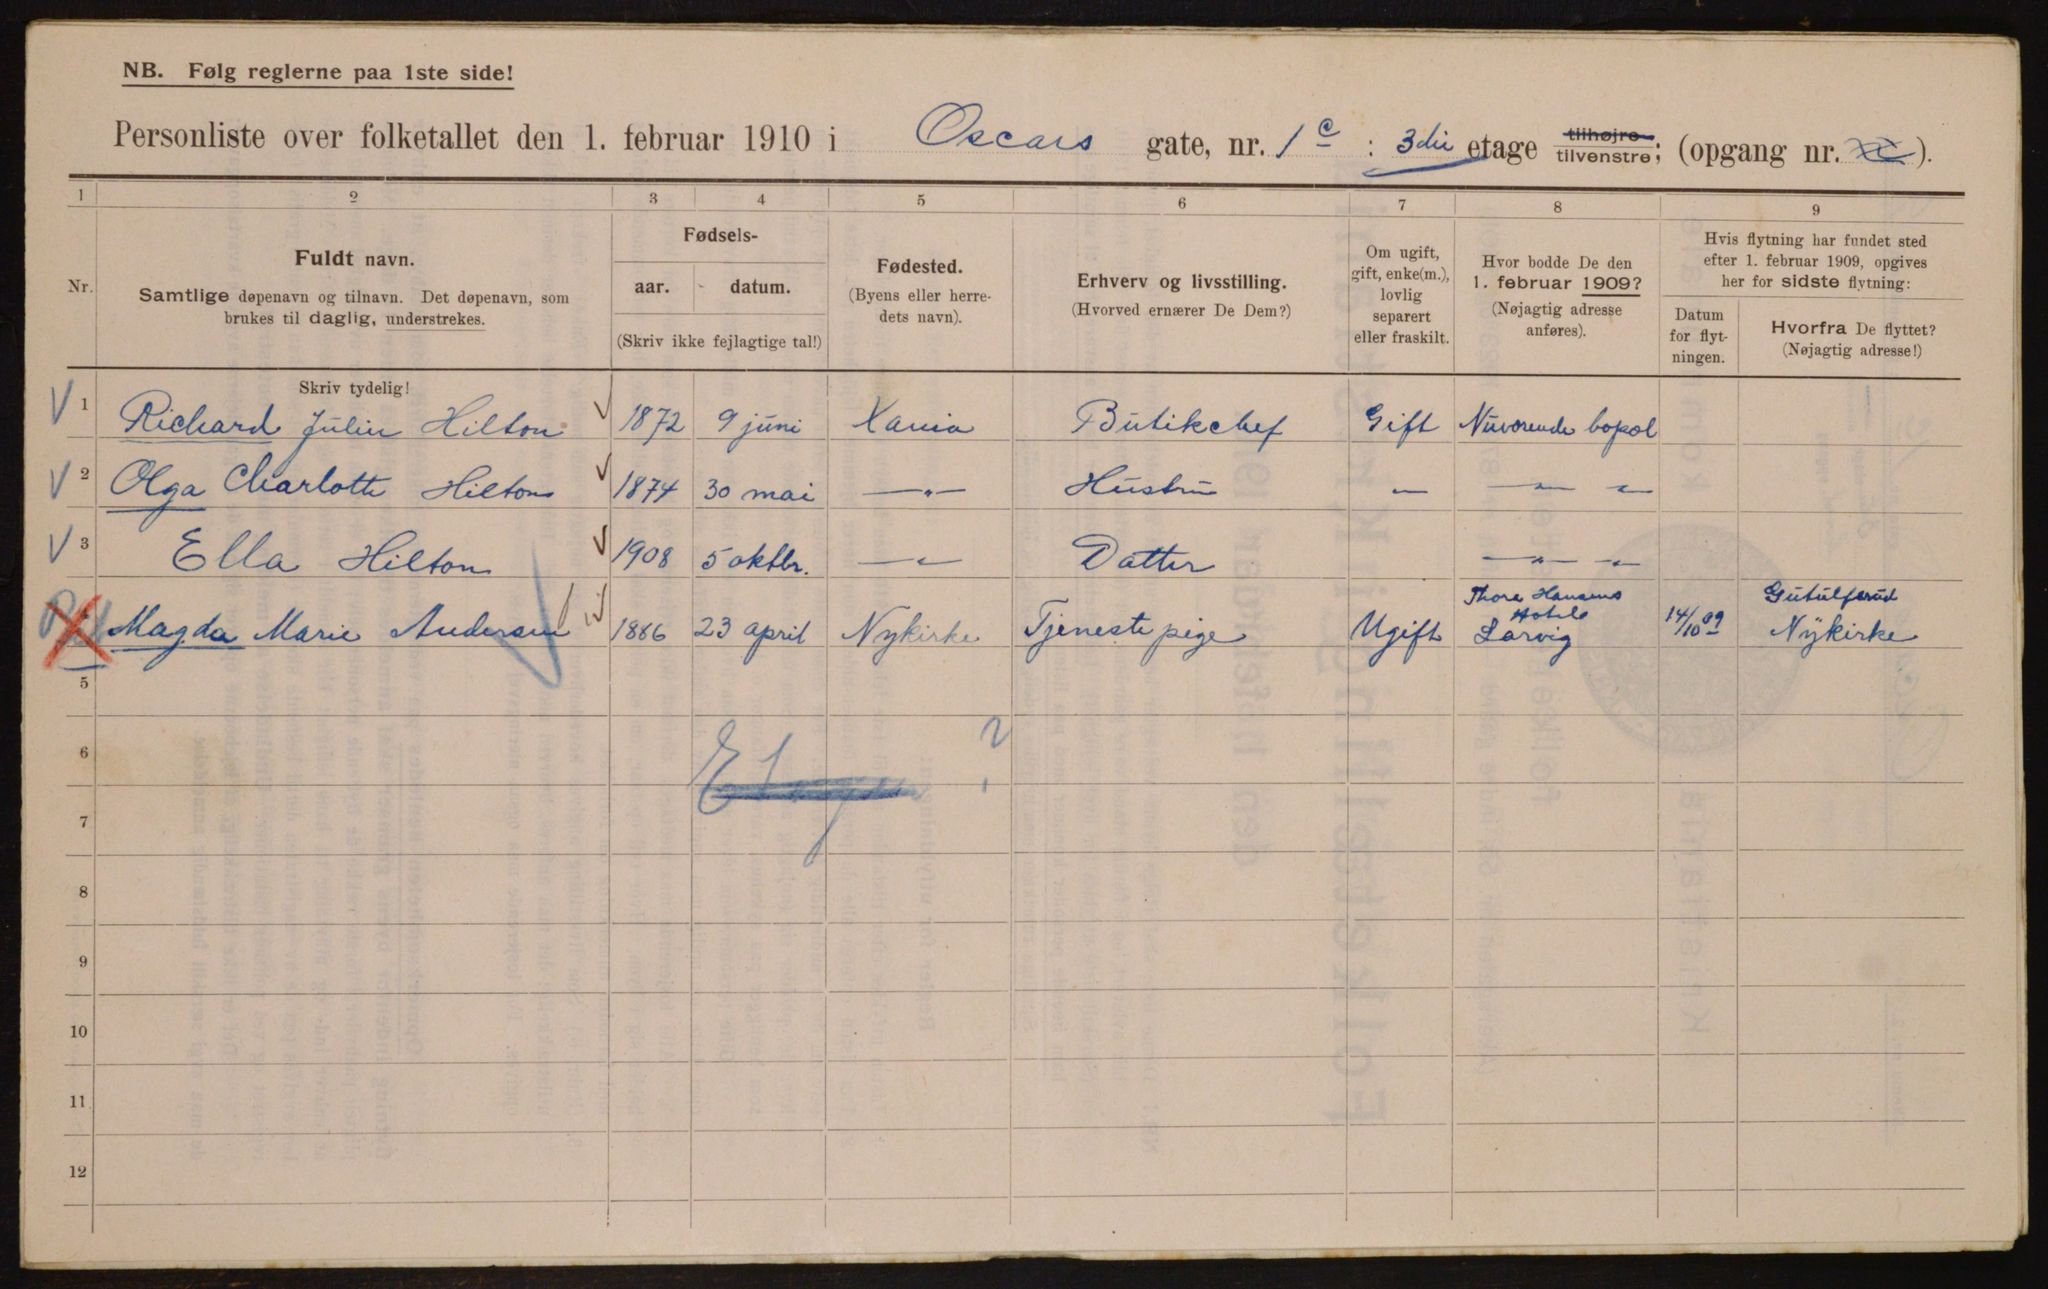 NB. Følg reglerne paa 1ste side!
Personliste over folketallet den 1. februar 1910 i Oscars gate, nr. 1 c : 3die etage tilhøjre tilvenstre; (opgang nr. ).
1 2 3 4 5 6 7 8 9
Nr.
Fuldt navn.
Samtlige døpenavn og tilnavn. Det døpenavn, som
brukes til daglig, understrekes.
Fødsels-
aar. datum.
(Skriv ikke fejlagtige tal!)
Fødested.
(Byens eller herre-
dets navn).
Erhverv og livsstilling.
(Hvorved ernærer De Dem?)
Om ugift,
gift, enke(m.),
lovlig
separert
eller fraskilt.
Hvor bodde De den
1. februar 1909?
(Nøjagtig adresse
anføres).
Hvis flytning har fundet sted
efter 1. februar 1909, opgives
her for sidste flytning:
Datum
for flyt-
ningen.
Hvorfra De flyttet?
(Nøjagtig adresse!)
Skriv tydelig!
1 Richard Julin Hilton 1872 9 juni Xania Butikchef Gift Nuværende bopæl
2 Olga Charlotte Hilton 1874 30 mai —„— Hustru — —„— —„—
3 Ella Hilton 1908 5 oktbr. —„— Datter —„— —„—
Magda Marie Andersen 1886 23 april Nykirke Tjenestepige Ugift Thore Hansens Hotel Larvig 14/10 09 Nykirke
5
6
7
8
9
10
11
12